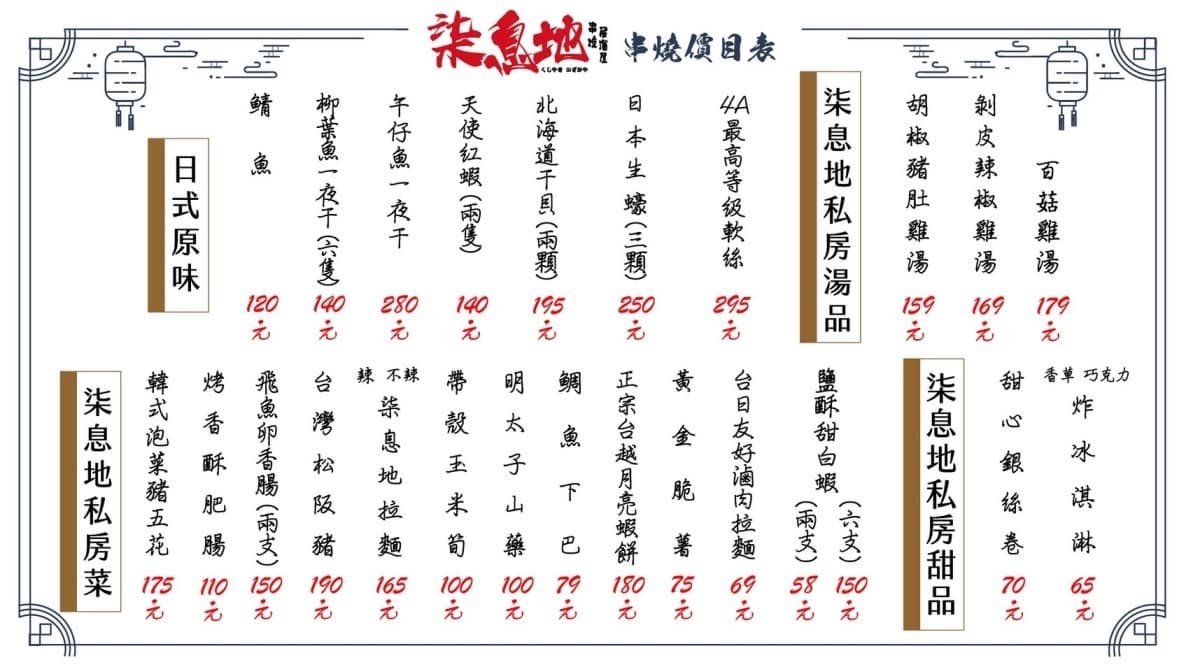 柒息地
串燒
居酒屋
くしやき いざかや
串燒價目表
百菇雞湯
179元
剝皮辣椒雞湯
169元
胡椒豬肚雞湯
159元
柒息地私房湯品
4A最高等級軟絲
295元
日本生蠔(三顆)
250元
北海道干貝(兩顆)
195元
天使紅蝦(兩隻)
140元
午仔魚一夜干
280元
柳葉魚一夜干(六隻)
140元
鯖魚
120元
日式原味
香草 巧克力
炸冰淇淋
65元
甜心銀絲卷
70元
柒息地私房甜品
鹽酥甜白蝦
(六支)
150元
(兩支)
58元
台日友好滷肉拉麵
69元
黃金脆薯
75元
正宗台越月亮蝦餅
180元
鯛魚下巴
79元
明太子山藥
100元
帶殼玉米筍
100元
辣 不辣
柒息地拉麵
165元
台灣松阪豬
190元
飛魚卵香腸(兩支)
150元
烤香酥肥腸
110元
韓式泡菜豬五花
175元
柒息地私房菜